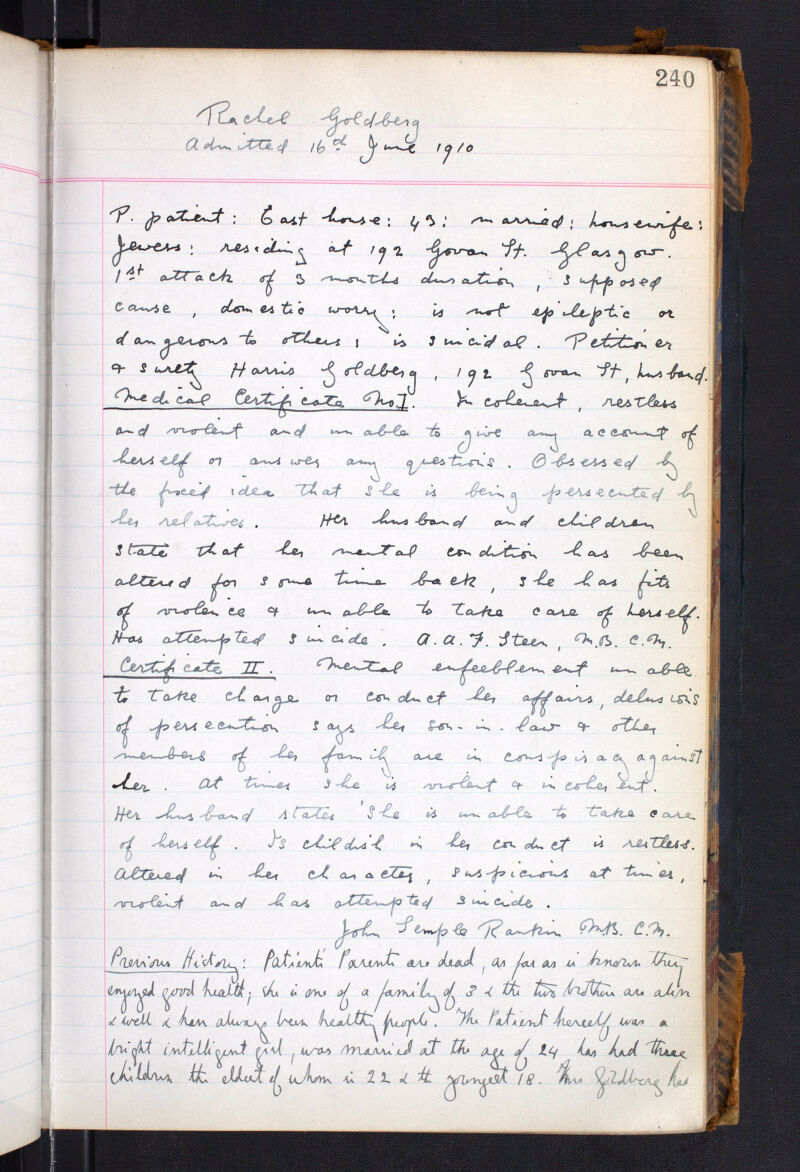 240
Rachel Goldberg
Admitted 16th June 1910
P. patient: East house: 43: married: housewife:
Jewess: residing at 192 Govan St. Glasgow.
1st attack of 3 months duration, supposed
cause, domestic worry; is not epileptic or
dangerous to others; is suicidal. Petitioner
& surety Harris Goldberg, 192 Govan St, husband.
Medical Certificate No I. Incoherent, restless
and violent and unable to give any account of
herself or answer any questions. Obsessed by
the fixed idea that she is being persecuted by
her relatives. Her husband and children
state that her mental condition has been
altered for some time back, she has fits
of violence & unable to take care of herself.
Has attempted suicide. A. A. F. Steen, M.B. C.M.
Certificate II. Mental enfeeblement unable
to take charge or conduct her affairs, delusions
of persecution says her son-in-law & other
members of her family are in conspiracy against
her. At times she is violent & incoherent.
Her husband states 'She is unable to take care
of herself. Is childish in her conduct is restless.
Altered in her character, suspicious at times,
violent and has attempted suicide.
John Semple Rankin M.B. C.M.
Previous History: Patient's Parents are dead, as far as is known they
enjoyed good health; she is one of a family of 3 & the two brothers are alive
& well & have always been healthy people. The Patient herself was a
bright intelligent girl, was married at the age of 24 has had three
children the eldest of whom is 22 & the youngest 18. Mrs Goldberg has